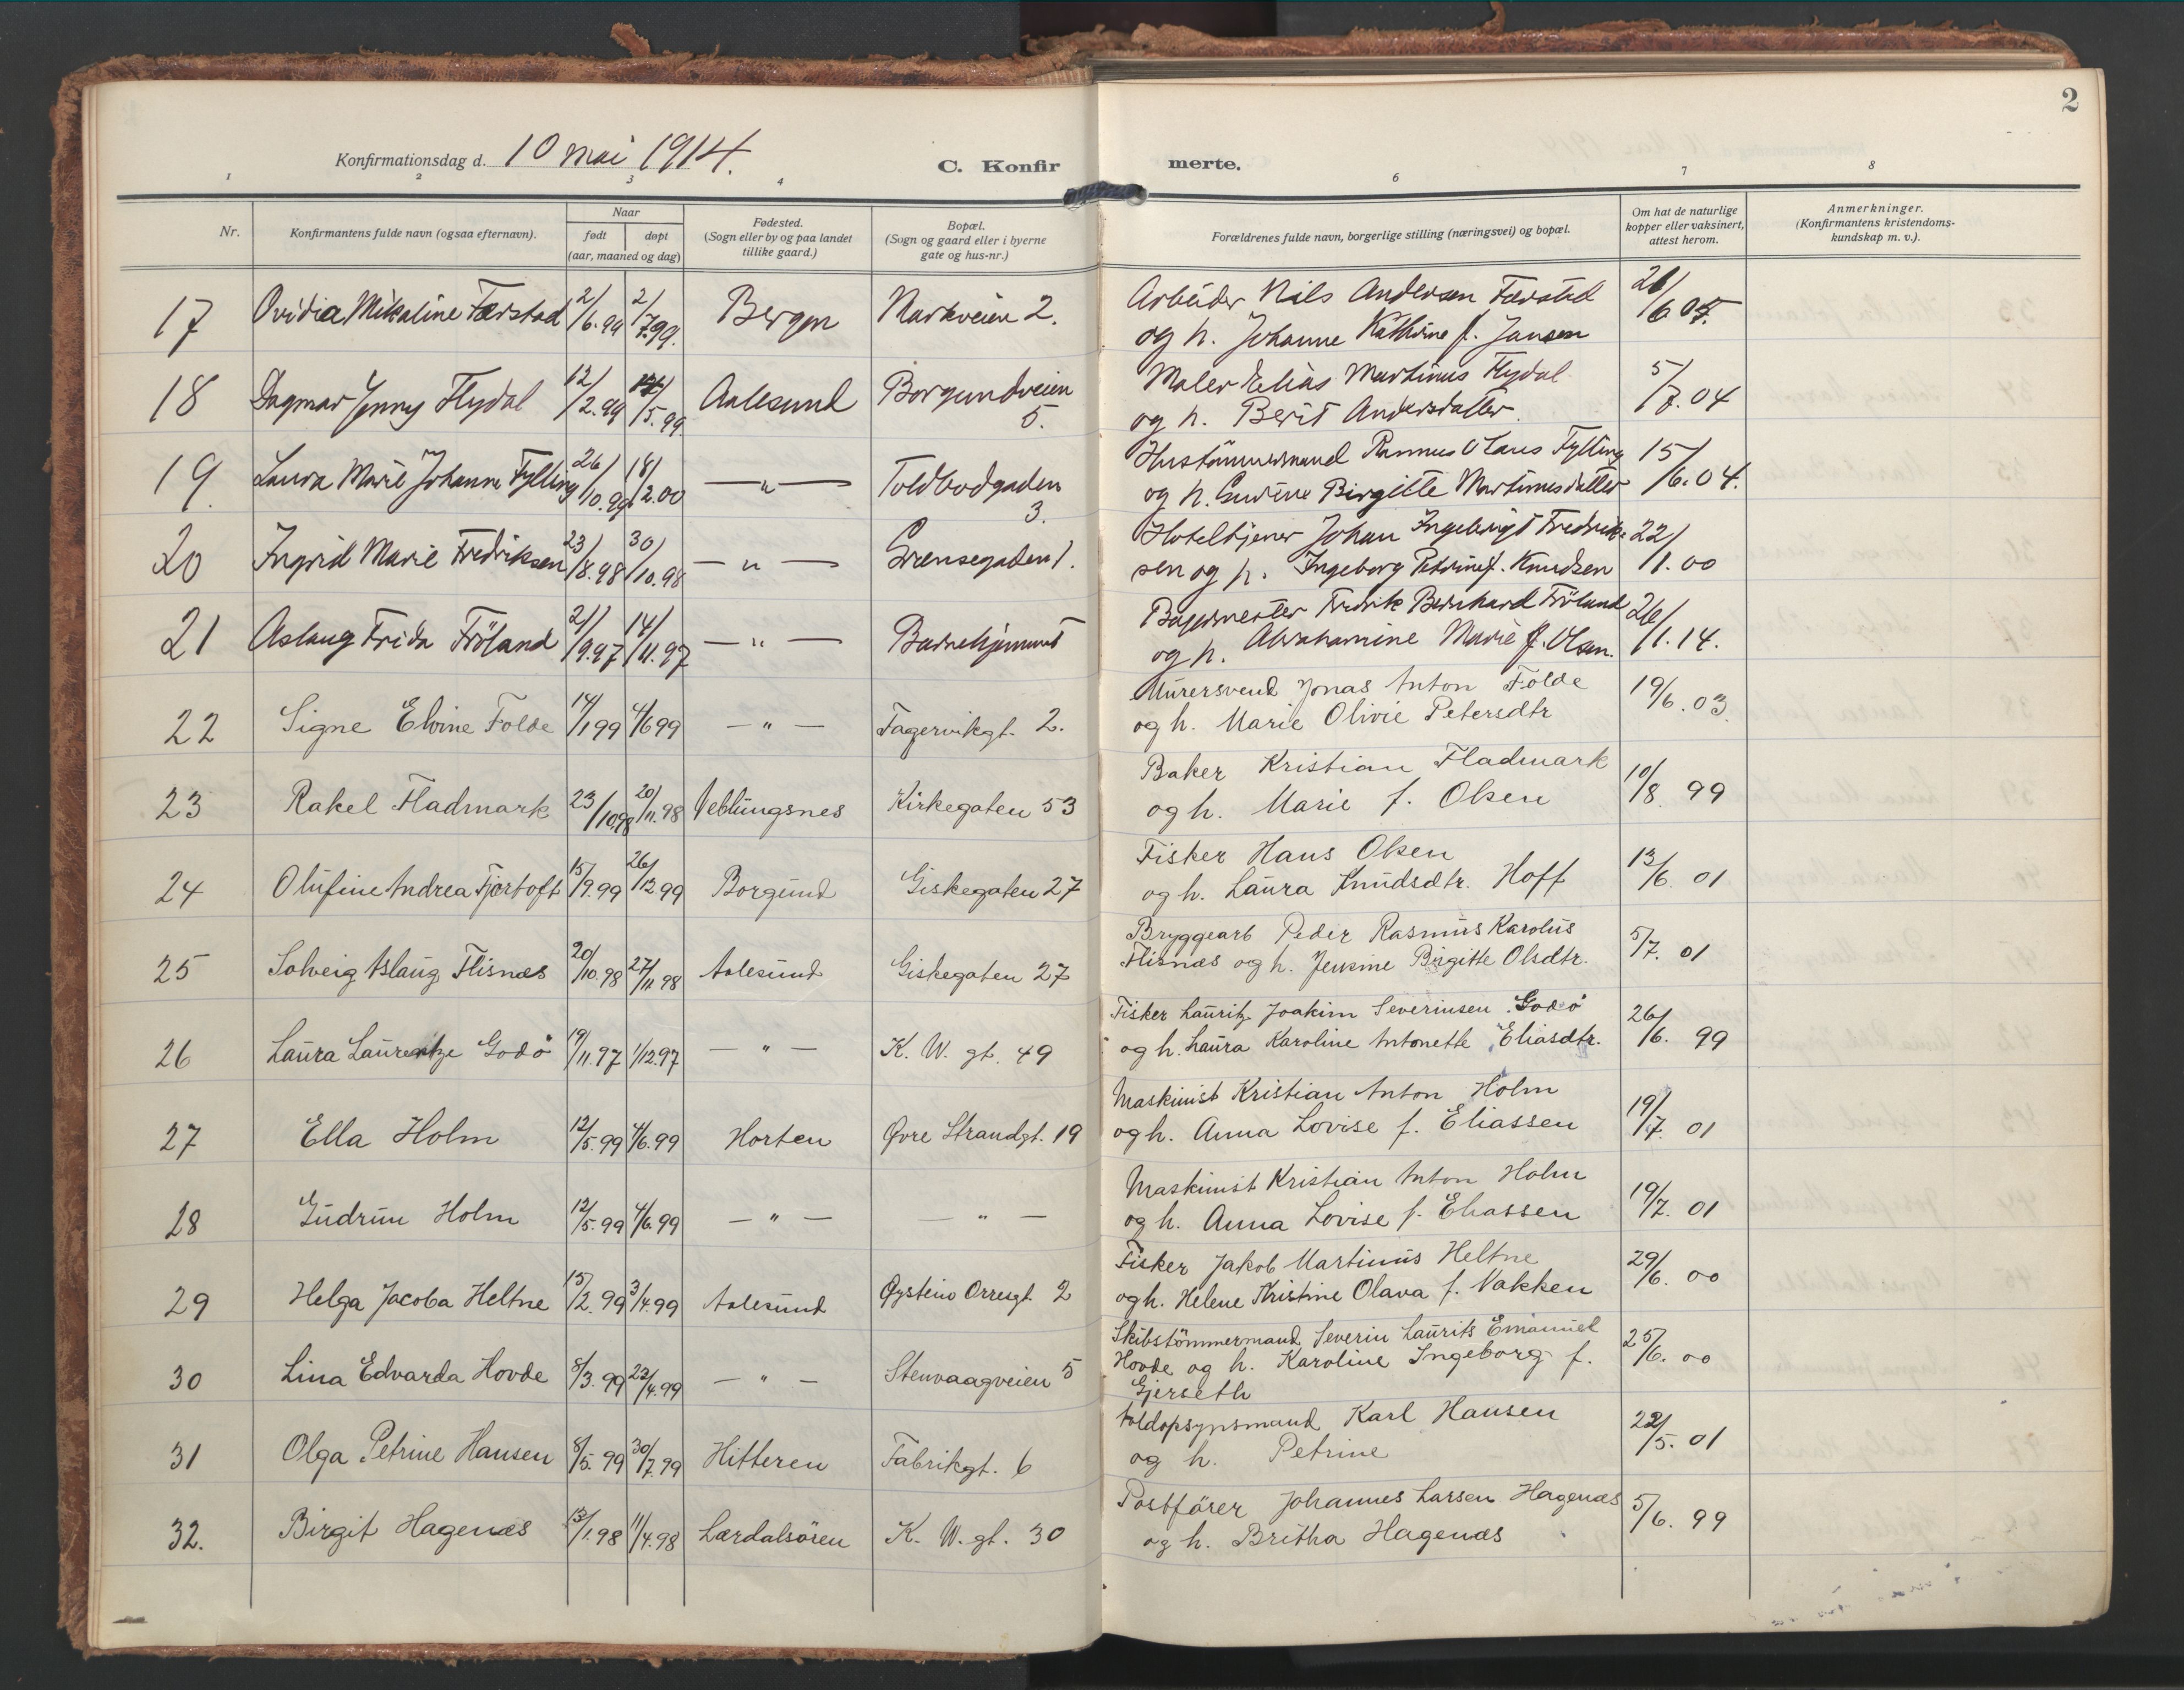 2
Konfirmationsdag d. 10 mai 1914.
C. Konfirmerte.
1 2 3 4 6 7 8
Nr.
Konfirmantens fulde navn (ogsaa efternavn).
Naar
født døpt
(aar, maaned og dag)
Fødested.
(Sogn eller by og paa landet
tillike gaard.)
Bopæl.
(Sogn og gaard eller i byerne
gate og hus-nr.)
Forældrenes fulde navn, borgerlige stilling (næringsvei) og bopæl.
Om hat de naturlige
kopper eller vaksinert,
attest herom.
Anmerkninger.
(Konfirmantens kristendoms-
kundskap m. v.).
17 Ovidia Mikaline Færstad 2/6.99 2/7.99. Bergen Markveien 2. Arbeider Nils Andersen Færstad 21/6 05.
og h. Johanne Kathrine f. Jansen
18 Dagmar Jenny Flydal 12/2.99 14/5.99 Aalesund Borgundveien Maler Elias Martinus Flydal 5/7.04
5. og h. Berit Andersdatter.
19. Laura Marie Johanne Fylling 26/10.99 18/2.00 — " — Toldbodgaden Hustömmermand Rasmus Olaus Fylling 15/6.04.
3. og h. Gurine Birgitte Martinusdatter
20 Ingrid Marie Fredriksen 23/8.98 30/10.98 — " — Grensegaden 1. Hoteltjener Johan Ingebrigt Fredrik- 22/1.00
sen og h. Ingeborg Petrine f. Knudsen
21 Aslaug Frida Fröland 21/9.97 14/11.97 — " — Barnehjemmet Bagermester Fredrik Bernhard Fröland 26/1.14.
og h. Abrahamine Marie f. Olsen.
22 Signe Elvine Folde 14/1 99 4/6 99 — " — Fagervikgt. 2. Murersvend Jonas Anton Folde 19/6.03.
og h. Marie Olivie Petersdtr
23 Rakel Fladmark 23/10.98 20/11.98 Veblungsnes Kirkegaten 53 Baker Kristian Fladmark 10/8 99
og h. Marie f. Olsen
24 Olufine Andrea Fjørtoft 15/9.99 26/12.99 Borgund Giskegaten 27 Fisker Hans Olsen 13/6. 01
og h. Laura Knudsdtr. Hoff
25 Solveig Aslaug Flisnæs 20/10.98 27/11.98 Aalesund Giskegaten 27 Bryggearb Peder Rasmus Karolus 5/7. 01
Flisnæs og h. Jensine Birgitte Olsdtr.
26 Laura Laurentze Godö 19/11.97 1/12.97 — " — K. W. gt. 49 Fisker Lauritz Joakim Severinsen Godö 26/6. 99
og h. Laura Karoline Antonette Eliasdtr.
27 Ella Holm 12/5.99 4/6.99 Horten Øvre Strandgt. 19 Maskinist Kristian Anton Holm 19/7. 01
og h. Anna Lovise f. Eliassen
28 Gudrun Holm 12/5.99 4/6.99 — " — — " — Maskinist Kristian Anton Holm 19/7. 01
og h. Anna Lovise f. Eliassen
29 Helga Jacoba Heltne 15/2.99 3/4.99 Aalesund Øystein Orresgt. 2 Fisker Jakob Martinus Heltne 29/6. 00
og h. Helene Kristine Olava f. Nakken
30 Lina Edvarda Hovde 8/3.99 23/4.99 — " — Stenvaagveien 5 Skibstömmermand Severin Laurits Emanuel 25/6. 00
Hovde og h. Karoline Ingeborg f.
Gjerseth
31 Olga Petrine Hansen 8/5.99 30/7.99 Hitteren Fabrikgt. 6 Toldopsynsmand Karl Hansen 22/5.01
og h. Petrine
32. Birgit Hagenæs 13/1.98 11/4.98 Lærdalsören K. W. gt. 30 Postförer Johannes Larsen Hagenæs 5/6. 99
og h. Britha Hagenæs